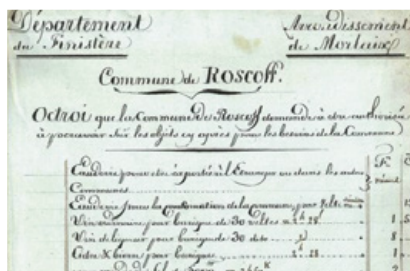 Département Arrondissement
du Finistère de Morlaix
Commune de Roscoff.
Octroi que la Commune de Roscoff demande à être authorisée
à percevoir sur les objets cy après pour les besoins de la Commune
F.
Eaudevie pour être exportée à l'Etranger ou dans les autres
Communes
Eaudevie pour la consommation de la commune, par Velte
Vin ordinaire pour barrique de 30 veltes 1
Vin de liqueur pour barrique de 30 8
Cidre & bierre pour barrique 1